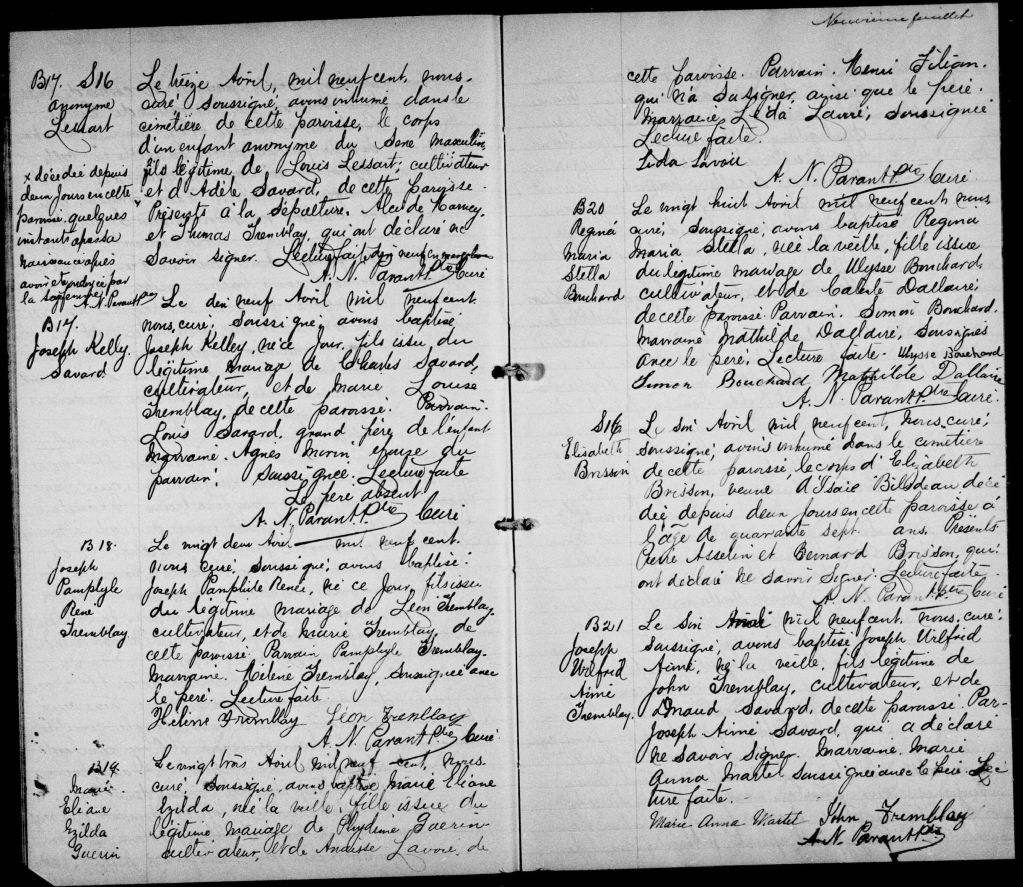 B17. S16
anonyme
Lessart
x décédé depuis
deux jours en cette
paroisse quelques
instants après sa
naissance après
avoir été ondoyé par
la sage femme A. N. Parant Ptre
Le treize Avril, mil neuf cent, nous
curé soussigné, avons inhumé dans le
cimetière de cette paroisse, le corps
d'un enfant anonyme du sexe masculin,
fils légitime de Louis Lessart; cultivateur
et d'Adèle Savard, de cette paroisse.
Présents à la sépulture.
et Thomas Tremblay, qui ont déclaré ne
savoir signer. Lecture faite
A. N. Parant Ptre Curé
B17.
Joseph Kelly
Savard
Le dix neuf Avril mil neuf cent
nous, curé, soussigné, avons baptisé
Joseph Kelley, né ce jour, fils issu du
légitime mariage de Charles Savard,
cultivateur, et de Marie Louise
Tremblay, de cette paroisse. Parrain.
Louis Savard, grand père de l'enfant
Marraine. Agnes Morin épouse du
parrain, soussignée. Lecture faite
Le père absent
A. N. Parant Ptre Curé
B18.
Joseph
Pamphyle
René
Tremblay
Le vingt deux Avril mil neuf cent.
nous curé, soussigné, avons baptisé.
Joseph Pamphile René, né ce jour, fils issu
du légitime mariage de Léon Tremblay
cultivateur, et de Marie Tremblay, de
cette paroisse. Parrain Pamphyle Tremblay.
Marraine. Hélène Tremblay, soussignée avec
le père. Lecture faite.
Hélène Tremblay Léon Tremblay
A. N. Parant Ptre Curé
B19.
Marie
Eliane
Ezilda
Guerin
Le vingt trois Avril mil neuf cent, nous
curé, soussigné, avons baptisé Marie Eliane
Ezilda, née la veille, fille issue du
légitime mariage de Phydime Guerin
cultivateur, et de Anaisse Lavoie, de
Neuvième feuillet
cette paroisse. Parrain. Henri Filion.
qui n'a su signer, ainsi que le père.
Marraine, Léda Lavoie, soussignée
Lecture faite.
Léda Lavoie
A. N. Parant Ptre Curé
B20
Regina
Maria
Stella
Bouchard
Le vingt huit Avril mil neuf cent nous
curé, soussigné, avons baptisé Regina
Maria Stella, née la veille, fille issue
du légitime mariage de Ulysse Bouchard
cultivateur, et de Dallaire
de cette paroisse. Parrain. Simon Bouchard.
Marraine Mathilde Dallaire, soussignés
avec le père. Lecture faite. Ulysse Bouchard
Simon Bouchard Mathilde Dallaire
A. N. Parant Ptre Curé.
S16
Elisabeth
Brisson
Le Avril mil neuf cent, nous, curé,
soussigné, avons inhumé dans le cimetière
de cette paroisse, le corps d'Elizabeth
Brisson, veuve d'Isaie Bilodeau décé
dée depuis deux jours en cette paroisse à
l'âge de quarante sept ans. Présents
Pierre Asselin et Bernard Brisson, qui
ont déclaré ne savoir signer. Lecture faite
A. N. Parant Ptre Curé
B21
Joseph
Wilfrid
Aimé
Tremblay.
Le mil neuf cent. nous, curé,
soussigné, avons baptisé Joseph Wilfrid
Aimé, né la veille, fils légitime de
John Tremblay, cultivateur, et de
Savard, de cette paroisse. Par-
Joseph Aimé Savard, qui a déclaré
ne savoir signer. Marraine. Marie
Anna Martel soussignée avec le père. Lec
ture faite.
Marie Anna Martel John Tremblay
A. N. Parant Ptre